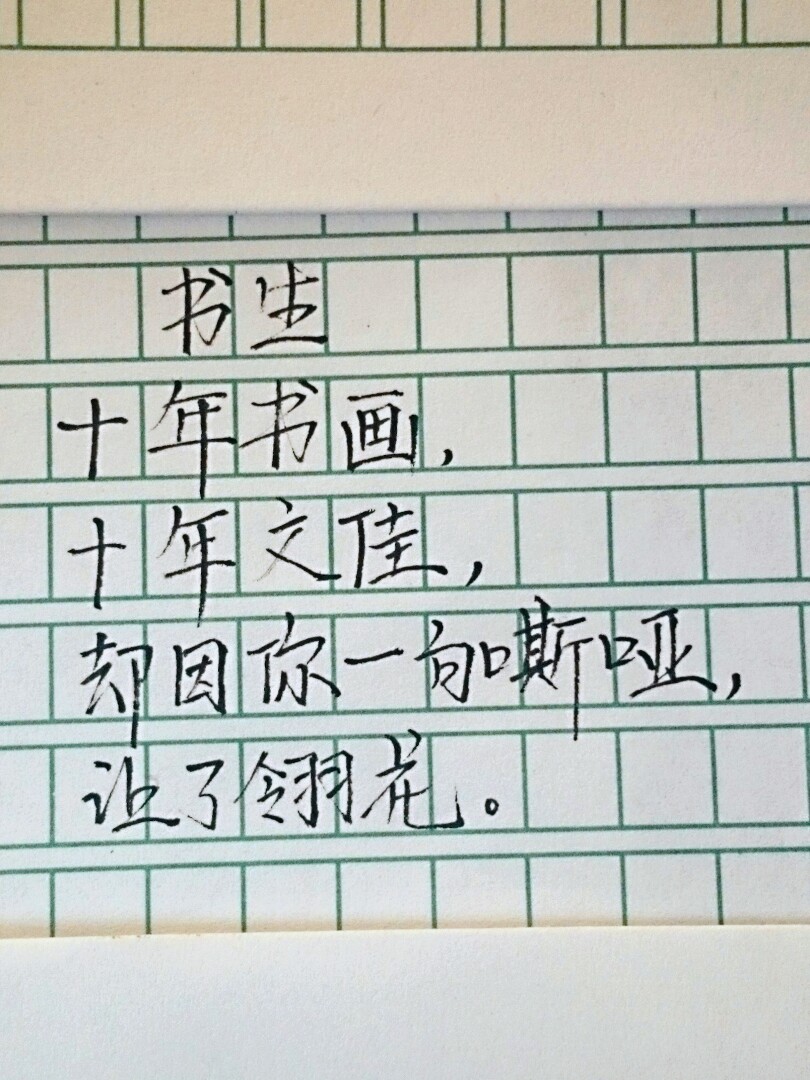 书生
十年书画，
十年文佳，
却因你一句嘶哑，
让了翎花。